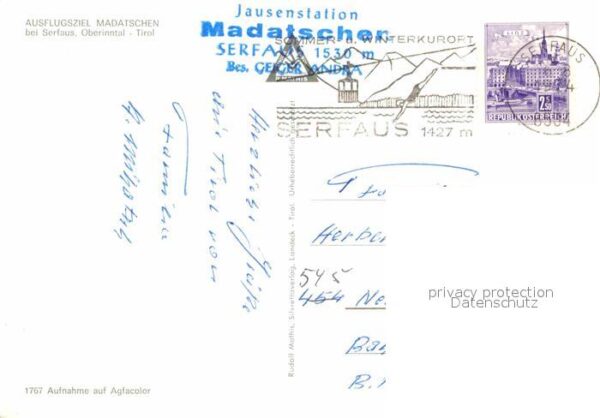 AUSFLUGSZIEL MADATSCHEN
bei Serfaus, Oberinntal - Tirol
Jausenstation
Madatschen
SERFAUS 1530 m
Bes. GEIGER ANDRA
SOMMER- u. WINTERKURORT
SERFAUS 1427 m
LINZ
2.50
REPUBLIK ÖSTERREICH
SERFAUS
Herzliche Grüße
aus Tirol von
Familie
Rudolf Mathis, Schnettaverlag, Landeck - Tirol. Urheberrechtlich
Herbe
545
454 Ne
Ba
B.
privacy protection
Datenschutz
1767 Aufnahme auf Agfacolor